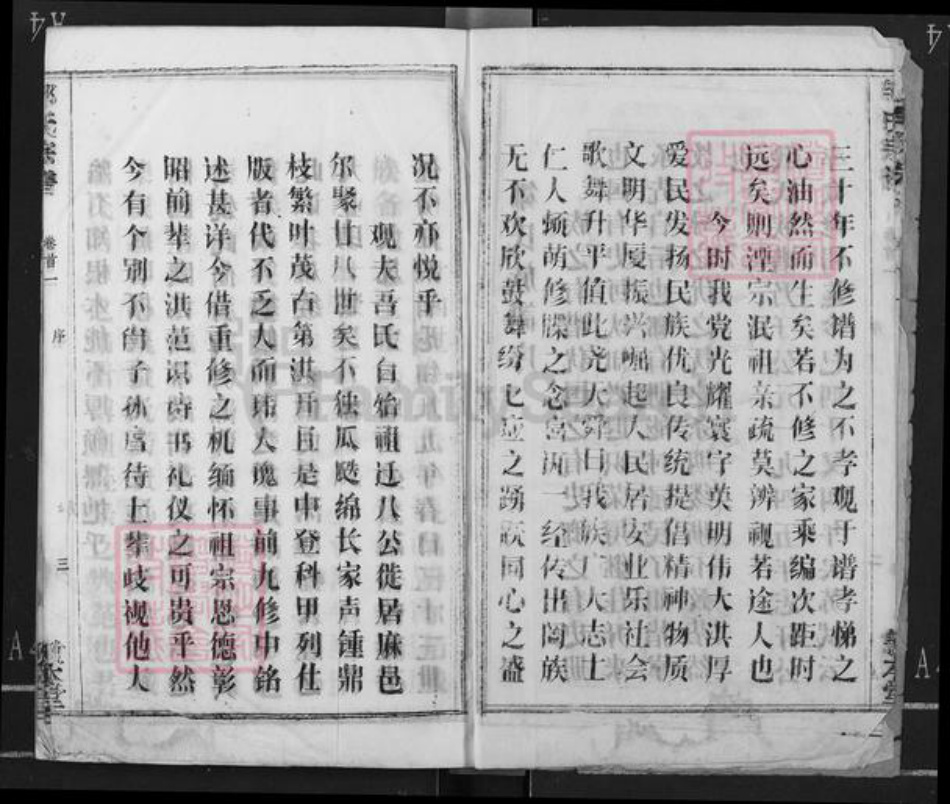 三十年不修谱为之不孝观于谱孝悌之
心油然而生矣若不修之家乘编次距时
远矣则湮宗泯祖亲疏莫辨视若途人也
今时我党光耀寰宇英明伟大洪厚
爱民发扬民族优良传统提倡精神物质
文明华厦振兴崛起人民居安业乐社会
歌舞升平值此尧天舜日我族广大志士
仁人频萌修牒之念宫词一经传出阖族
无不欢欣鼓舞纷七应之踊跃同心之盛
况不亦悦乎
观夫吾氏自始祖迁八公徙居麻邑
尔聚廿八世矣不独瓜瓞绵长家声钟鼎
枝繁叶茂合第洪开且是中登科甲列仕
版者代不乏人而玮人瑰事前九修申铭
述甚详今借重修之机缅怀祖宗恩德彰
昭前辈之洪范识诗书礼仪之可贵乎然
今有个别不肖子孙虐待上辈歧视他人
卷首一
序
三